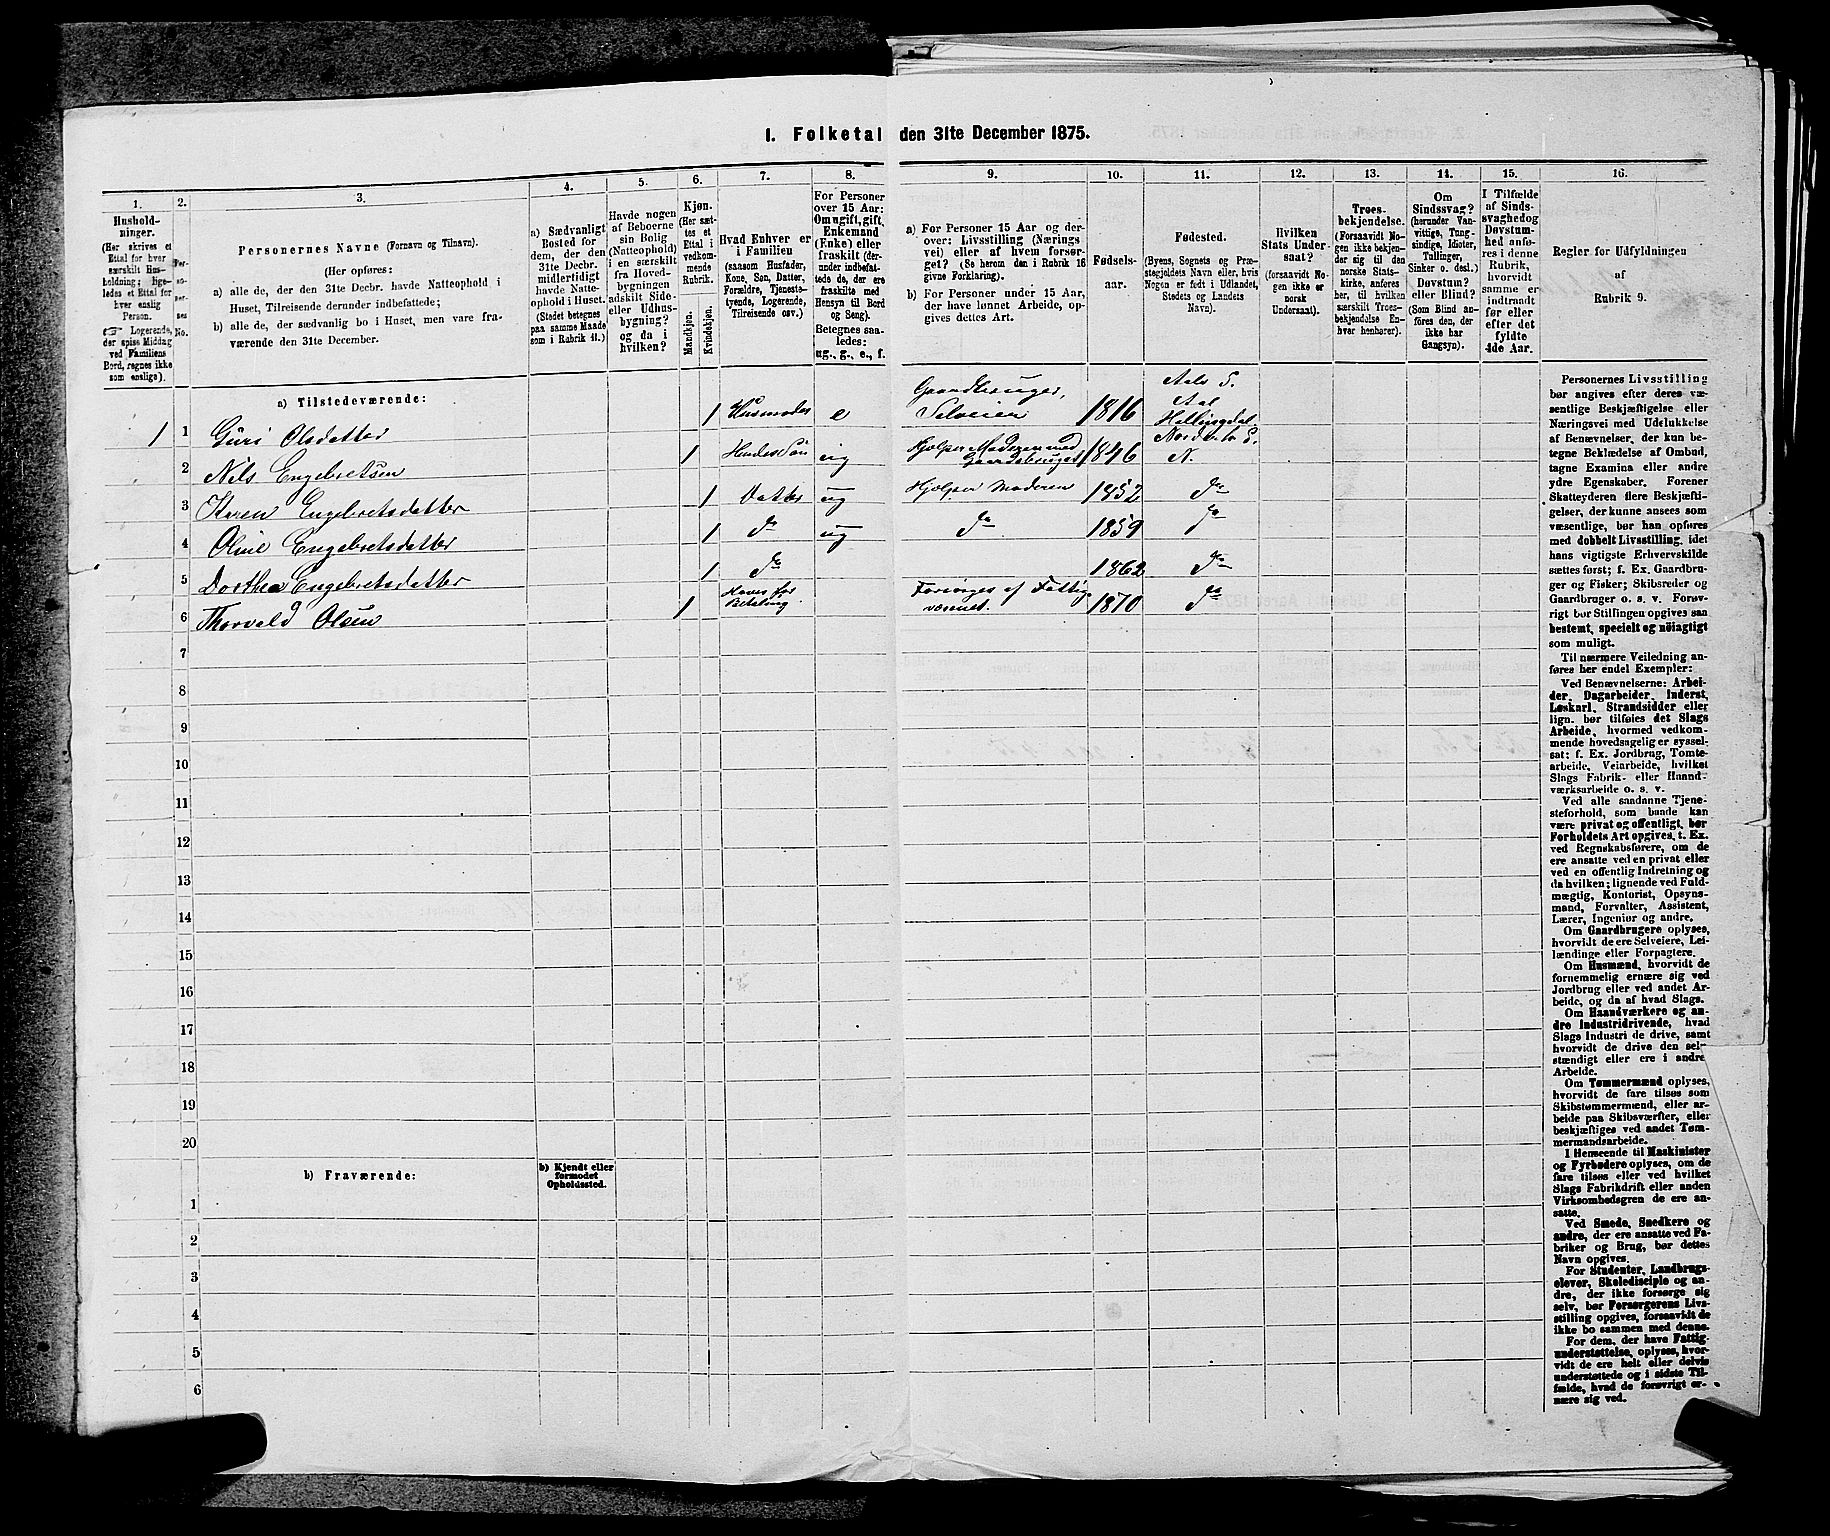 1. Folketal den 31te December 1875.
1.
Hushold-
ninger.
(Her skrives et
Ettal for hver
særskilt Hus-
holdning; lige-
ledes et Ettal for
hver enslig
Person.
☞ Logerende,
der spise Middag
ved Familiens
Bord, regnes ikke
som enslige).
2.
Per-
so-
ner-
ses
No.
3.
Personernes Navne (Fornavn og Tilnavn).
(Her opføres:
a) alle de, der den 31te Decbr. havde Natteophold i
Huset, Tilreisende derunder indbefattede;
b) alle de, der sædvanlig bo i Huset, men vare fra-
værende den 31te December.
4.
a) Sædvanligt
Bosted for
dem, der den
31te Decbr.
midlertidigt
havde Natte-
ophold i Huset.
(Stedet betegnes
paa samme Maade
som i Rubrik 11.)
5.
Havde nogen
af Beboerne
sin Bolig
(Natteophold)
i en særskilt
fra Hoved-
bygningen
adskilt Side-
eller Udhus-
bygning?
og da i
hvilken?
6.
Kjøn.
(Her sæt-
tes et
Ettal i
vedkom-
mende
Rubrik.
Mandkjøn.
Kvindekjøn.
7.
Hvad Enhver er
i Familien
(saasom Husfader,
Kone, Søn, Datter,
Forældre, Tjeneste-
tyende, Logerende,
Tilreisende osv.)
8.
For Personer
over 15 Aar:
Om ugift, gift,
Enkemand
(Enke) eller
fraskilt (der-
under indbefat-
tede de, der ere
fraskilte med
Hensyn til Bord
og Seng).
Betegnes saa-
ledes:
ug., g., e., f.
9.
a) For Personer 15 Aar og der-
over: Livsstilling (Nærings-
vei) eller af hvem forsør-
get? (Se herom den i Rubrik 16
givne Forklaring).
b) For Personer under 15 Aar,
der have lønnet Arbeide, op-
gives dettes Art.
10.
Fødsels-
aar.
11.
Fødested.
(Byens, Sognets og Præ-
stegjeldets Navn eller, hvis
Nogen er født i Udlandet,
Stedets og Landets
Navn).
12.
Hvilken
Stats Under-
saat?
(forsaavidt No-
gen ikke er
norsk
Undersaat).
13.
Troes-
bekjendelse.
(Forsaavidt No-
gen ikke bekjen-
der sig til den
norske Stats-
kirke, anføres
her, til hvilken
særskilt Troes-
bekjendelse En-
hver henhører).
14.
Om
Sindssvag?
(herunder Van-
vittige, Tung-
sindige, Idioter,
Tullinger,
Sinker o. desl.)
Døvstum?
eller Blind?
(Som Blind an-
føres den, der
ikke har
Gangsyn).
15.
I Tilfælde
af Sinds-
svaghed og
Døvstum-
hed anfø-
res i denne
Rubrik,
hvorvidt
samme er
indtraadt
før eller
efter det
fyldte
4de Aar.
16.
Regler for Udfyldningen
af
Rubrik 9.
a) Tilstedeværende:
1 1 Guri Olsdatter 1 Husmoder e Gaardbruger, Selveier 1816 Aals S. Aal Hallingdal.
2 Nils Engebretsen 1 Hendes Søn ug Hjelper Moderen med Gaardsbruget 1846 N.
3 Karen Engebretsdatter 1 Datter ug Hjelper Moderen 1852 Do
4 Oline Engebretsdatter 1 Do ug Do 1859 Do
5 Dorthea Engebretsdatter 1 Do 1862 Do
6 Thorvald Olsen 1 Haves for Betaling. Forsørges af Fattigvæsenet. 1870 Do
7
8
9
10
11
12
13
14
15
16
17
18
19
20
b) Fraværende:
b) Kjendt eller
formodet
Opholdssted.
1
2
3
4
5
6
Personernes Livsstilling
bør angives efter deres væ-
sentlige Beskjæftigelse eller
Næringsvei med Udelukkelse
af Benævnelser, der kun be-
tegne Beklædelse af Ombud,
tagne Examina eller andre
ydre Egenskaber. Forener
Skatteyderen flere Beskjæfti-
gelser, der kunne ansees som
væsentlige, bør han opføres
med dobbelt Livsstilling, idet
hans vigtigste Erhvervskilde
sættes først; f. Ex. Gaardbru-
ger og Fisker; Skibsreder og
Gaardbruger o. s. v. Forøv-
rigt bør Stillingen opgives saa
bestemt, specielt og nöiagtigt
som muligt.
Til nærmere Veiledning an-
føres her endel Exempler:
Ved Benævnelserne: Arbei-
der, Dagarbeider, Inderst,
Løskarl, Strandsidder eller
lign. bør tilføies det Slags
Arbeide, hvormed vedkom-
mende hovedsagelig er syssel-
sat; f. Ex. Jordbrug, Tomte-
arbeide, Veiarbeide, hvilket
Slags Fabrik- eller Haand-
værksarbeide o. s. v.
Ved alle saadanne Tjene-
steforhold, som baade kan
være privat og offentligt, bør
Forholdets Art opgives, t. Ex.
ved Regnskabsførere, om de
ere ansatte ved en privat eller
ved en offentlig Indretning og
da hvilken; lignende ved Fuld-
mægtig, Kontorist, Opsyns-
mand, Forvalter, Assistent,
Lærer, Ingeniør og andre.
Om Gaardbrugere oplyses,
hvorvidt de ere Selveiere, Lei-
lændinge eller Forpagtere.
Om Husmænd, hvorvidt de
fornemmelig ernære sig ved
Jordbrug eller ved andet Ar-
beide, og da af hvad Slags.
Om Haandværkere og an-
dre Industridrivende, hvad
Slags Industri de drive, samt
hvorvidt de drive den sel-
stændigt eller ere i andres
Arbeide.
Om Tømmermænd oplyses,
hvorvidt de fare tilsøs som
Skibstømmermænd, eller ar-
beide paa Skibsværfter, eller
beskjæftiges ved andet Tøm-
mermandsarbeide.
I Henseende til Maskinister
og Fyrbødere oplyses, om de
fare tilsøs eller ved hvilket
Slags Fabrikdrift eller anden
Virksomhedsgren de ere an-
satte.
Ved Smede, Snedkere og
andre, der ere ansatte ved Fa-
briker og Brug, bør dettes
Navn opgives.
For Studenter, Landbrugs-
elever, Skoledisciple og an-
dre, der ikke forsørge sig
selv, bør Forsørgerens Livs-
stilling opgives, forsaavidt de
ikke bo sammen med denne.
For dem, der have Fattig-
understøttelse, oplyses, hvor-
vidt de ere helt eller delvis
understøttede og i sidste Til-
fælde, hvad de forøvrigt er-
nære sig ved.